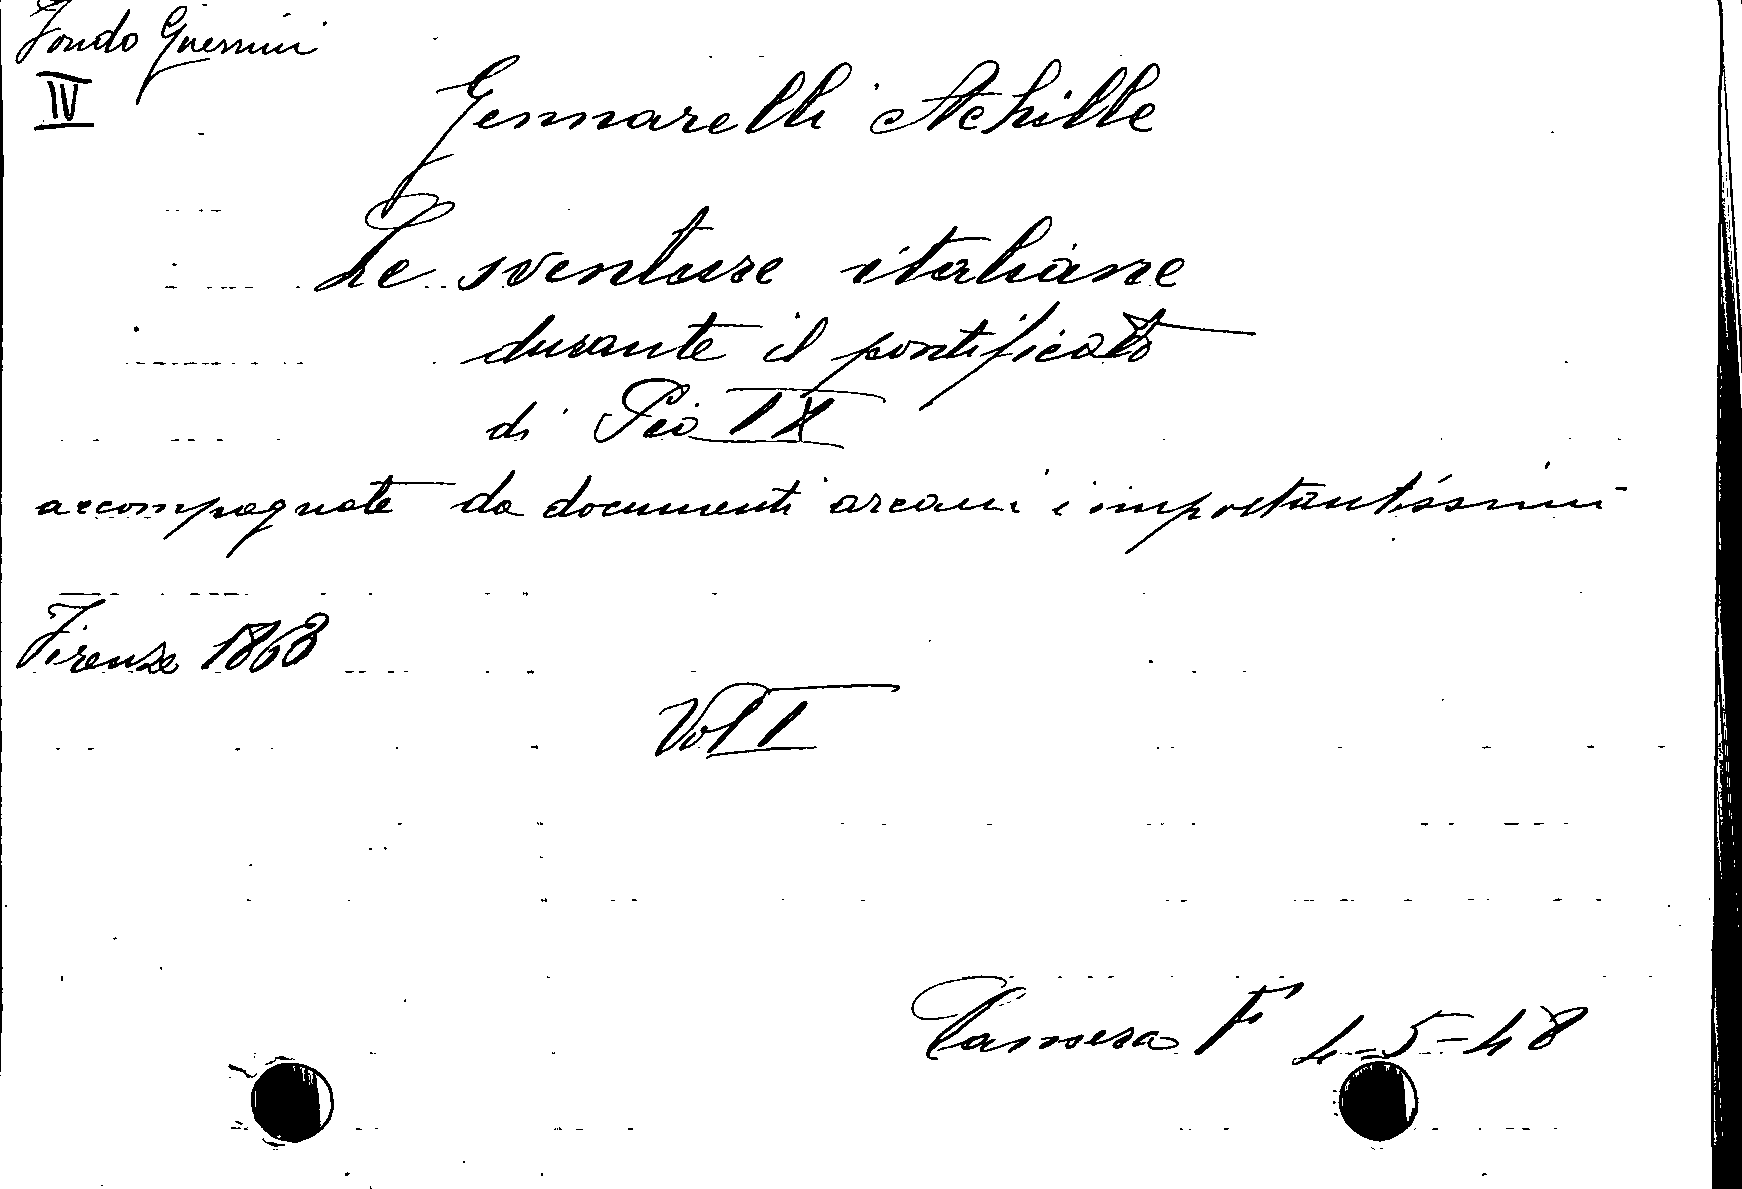 Fondo Guerrini
IV
Gennarelli Achille
Le sventure italiane
durante il pontificato
di Pio IX
accompagnate da documenti arcani i importantissimi
Firenze 1863
Vol I
Camera F 4-5-48